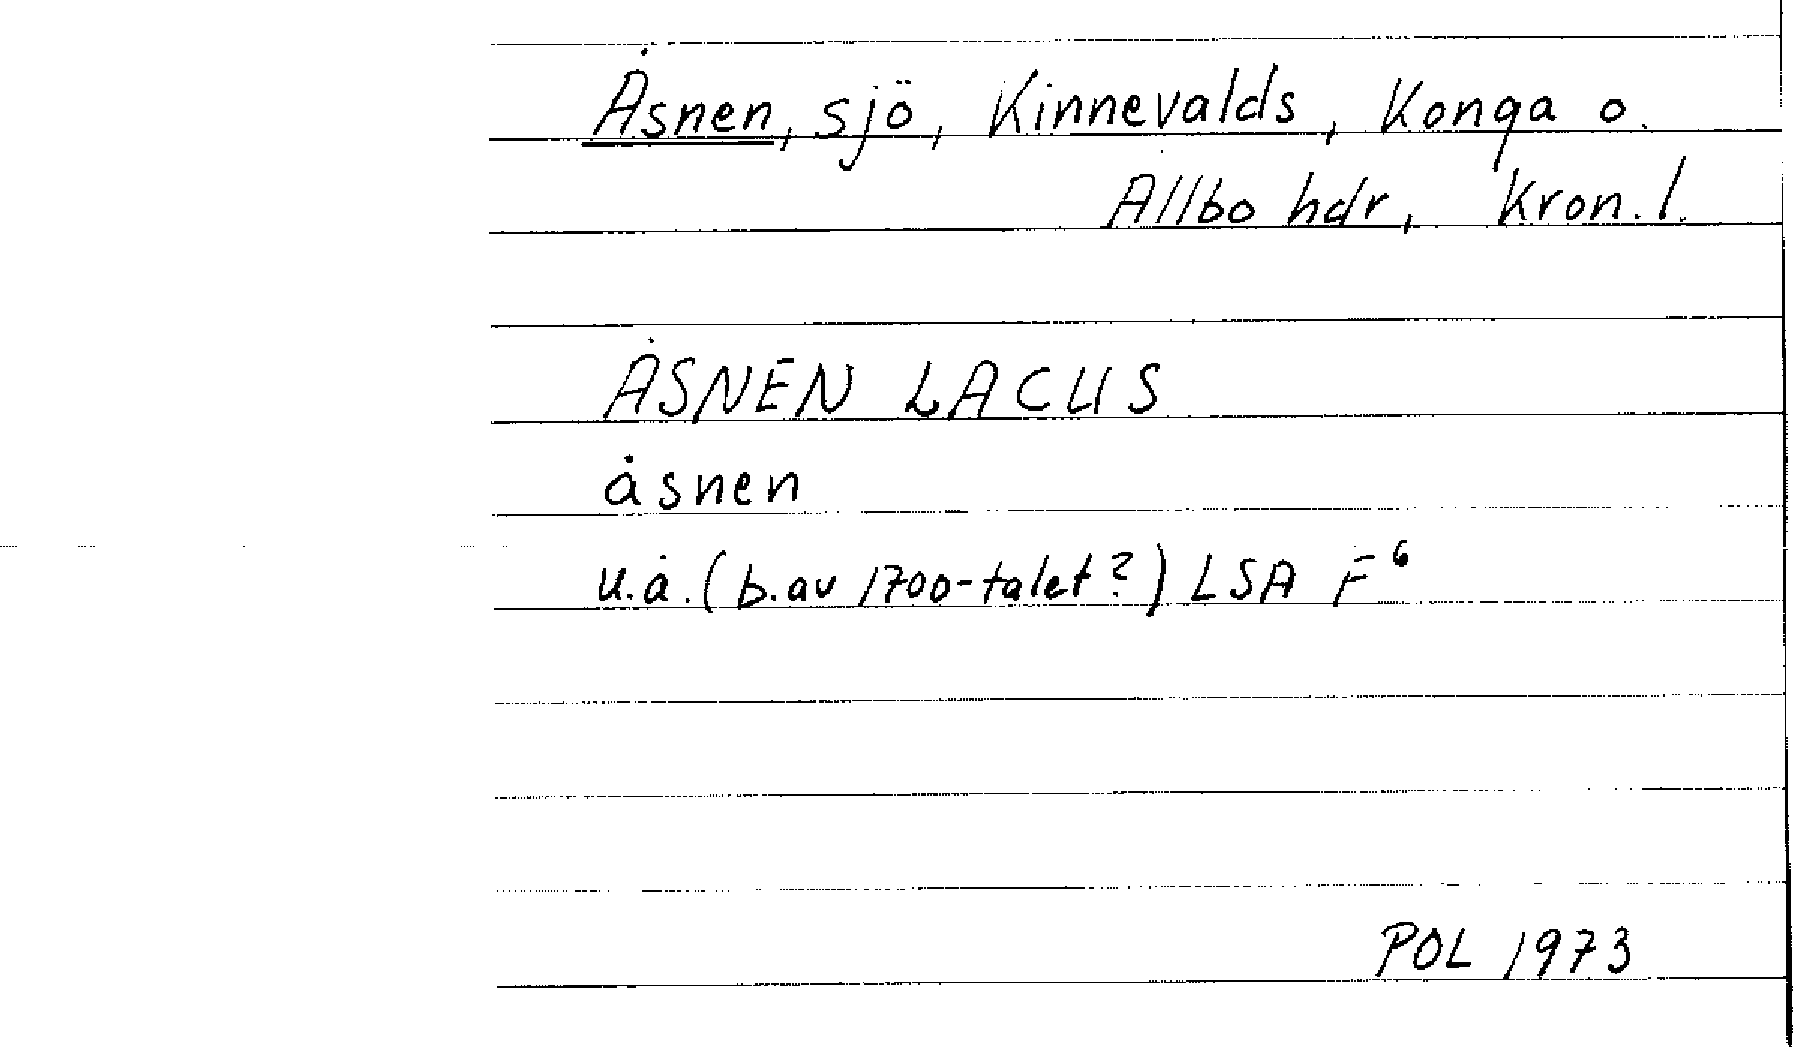 Åsnen, sjö, Kinnevalds, Konga o.
Allbo hdr, Kron. l.
ÅSNEN LACUS
åsnen
u.å. (b. av 1700-talet?) LSA F⁶
POL 1973